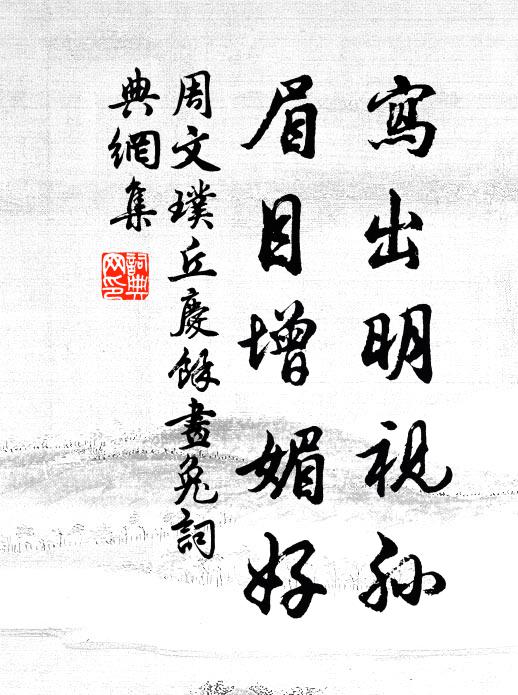 寫出明視孫
眉目增媚好
周文璞丘慶餘畫兔詞
典網集
詞典网印